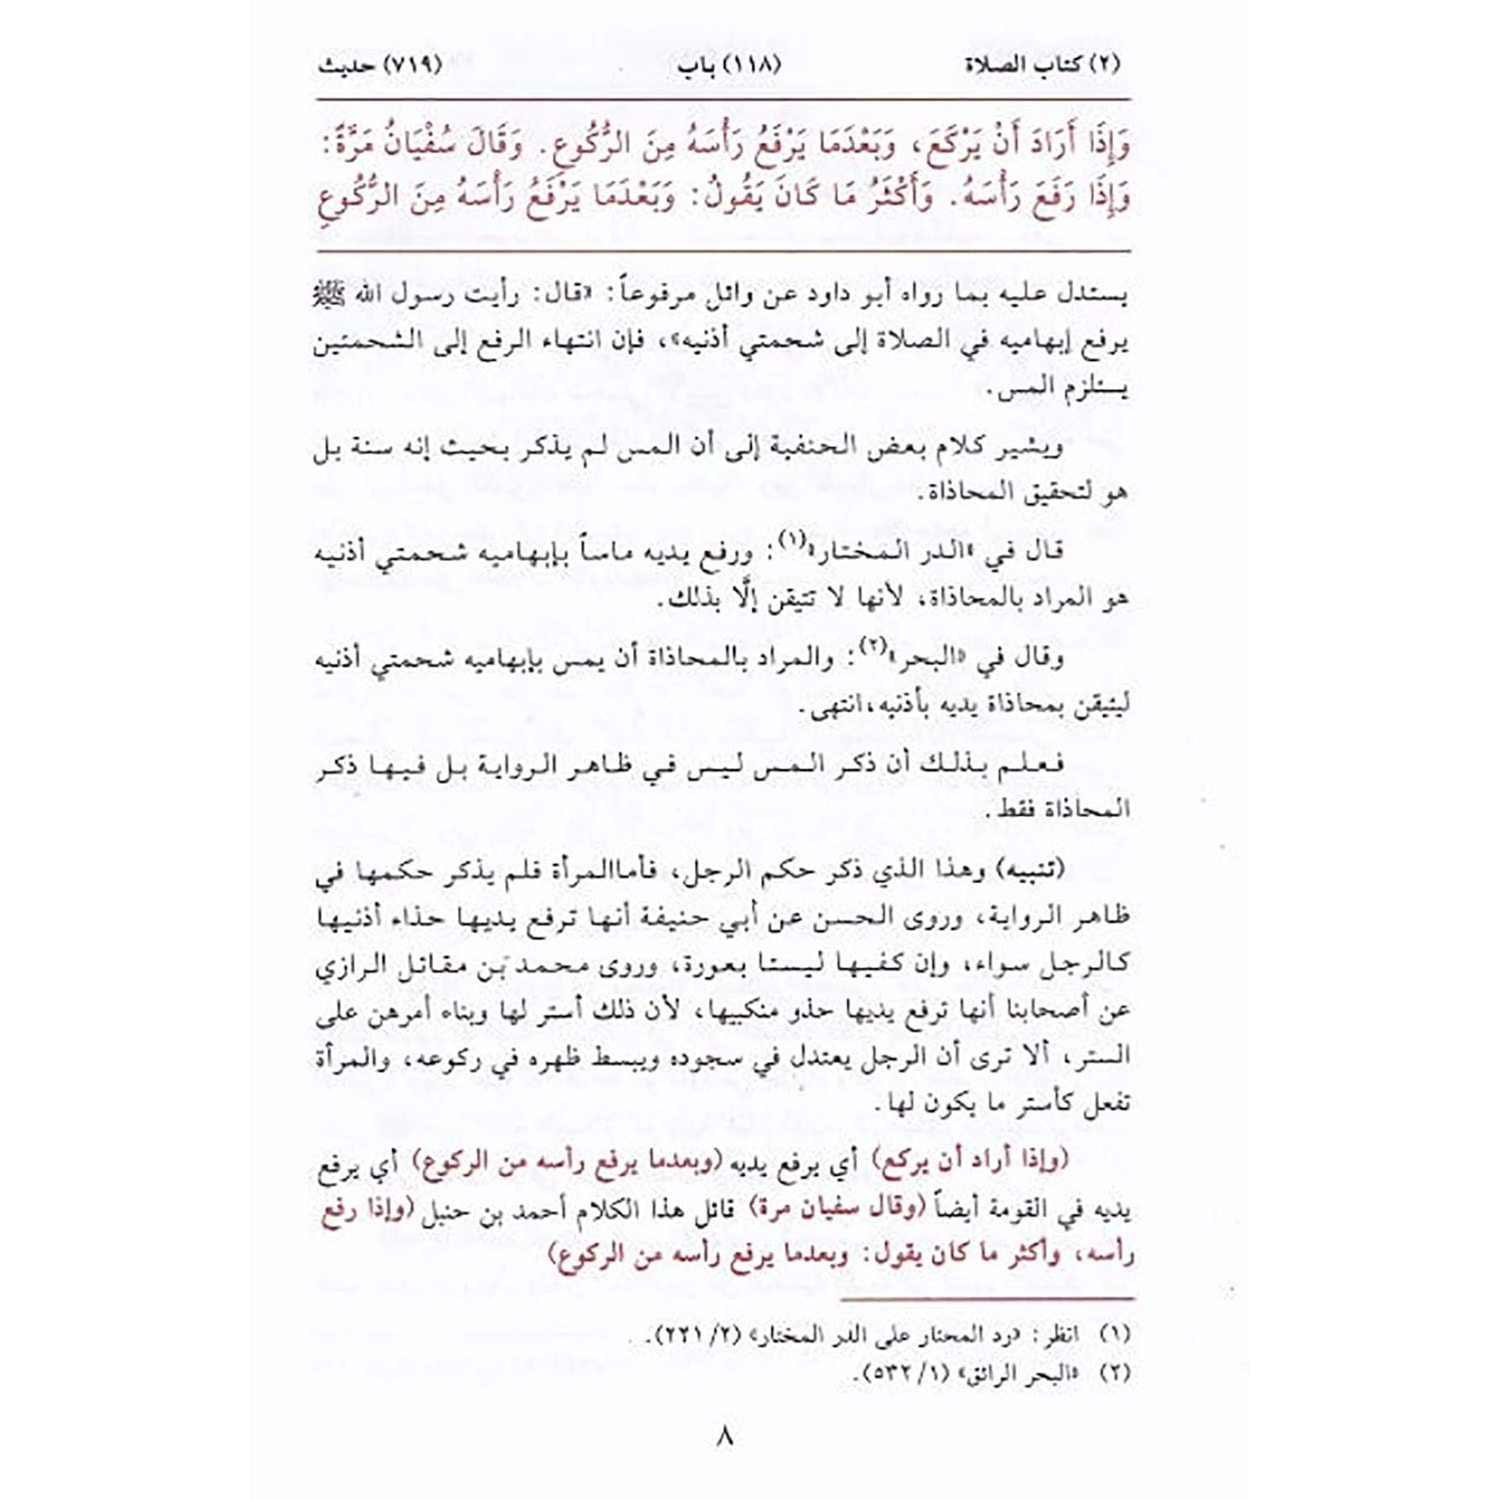 (٢) كتاب الصلاة (١١٨) باب (٧١٩) حديث
وَإِذَا أَرَادَ أَنْ يَرْكَعَ، وَبَعْدَمَا يَرْفَعُ رَأْسَهُ مِنَ الرُّكُوعِ. وَقَالَ سُفْيَانُ مَرَّةً:
وَإِذَا رَفَعَ رَأْسَهُ. وَأَكْثَرُ مَا كَانَ يَقُولُ: وَبَعْدَمَا يَرْفَعُ رَأْسَهُ مِنَ الرُّكُوعِ
يستدل عليه بما رواه أبو داود عن وائل مرفوعاً: «قال: رأيت رسول الله ﷺ
يرفع إبهاميه في الصلاة إلى شحمتي أذنيه»، فإن انتهاء الرفع إلى الشحمتين
يستلزم المس.
ويشير كلام بعض الحنفية إلى أن المس لم يذكر بحيث إنه سنة بل
هو لتحقيق المحاذاة.
قال في «الدر المختار»(١): ورفع يديه ماساً بإبهاميه شحمتي أذنيه
هو المراد بالمحاذاة، لأنها لا تتيقن إلَّا بذلك.
وقال في «البحر»(٢): والمراد بالمحاذاة أن يمس بإبهاميه شحمتي أذنيه
ليتيقن بمحاذاة يديه بأذنيه،انتهى.
فعلم بذلك أن ذكر المس ليس في ظاهر الرواية بل فيها ذكر
المحاذاة فقط.
(تنبيه) وهذا الذي ذكر حكم الرجل، فأماالمرأة فلم يذكر حكمها في
ظاهر الرواية، وروى الحسن عن أبي حنيفة أنها ترفع يديها حذاء أذنيها
كالرجل سواء، وإن كفيها ليستا بعورة، وروى محمد بن مقاتل الرازي
عن أصحابنا أنها ترفع يديها حذو منكبيها، لأن ذلك أستر لها وبناء أمرهن على
الستر، ألا ترى أن الرجل يعتدل في سجوده ويبسط ظهره في ركوعه، والمرأة
تفعل كأستر ما يكون لها.
(وإذا أراد أن يركع) أي يرفع يديه (وبعدما يرفع رأسه من الركوع) أي يرفع
يديه في القومة أيضاً (وقال سفيان مرة) قائل هذا الكلام أحمد بن حنبل (وإذا رفع
رأسه، وأكثر ما كان يقول: وبعدما يرفع رأسه من الركوع)
(١) انظر: «رد المحتار على الدر المختار» (٢/ ٢٢١).
(٢) «البحر الرائق» (١/ ٥٣٢).
٨